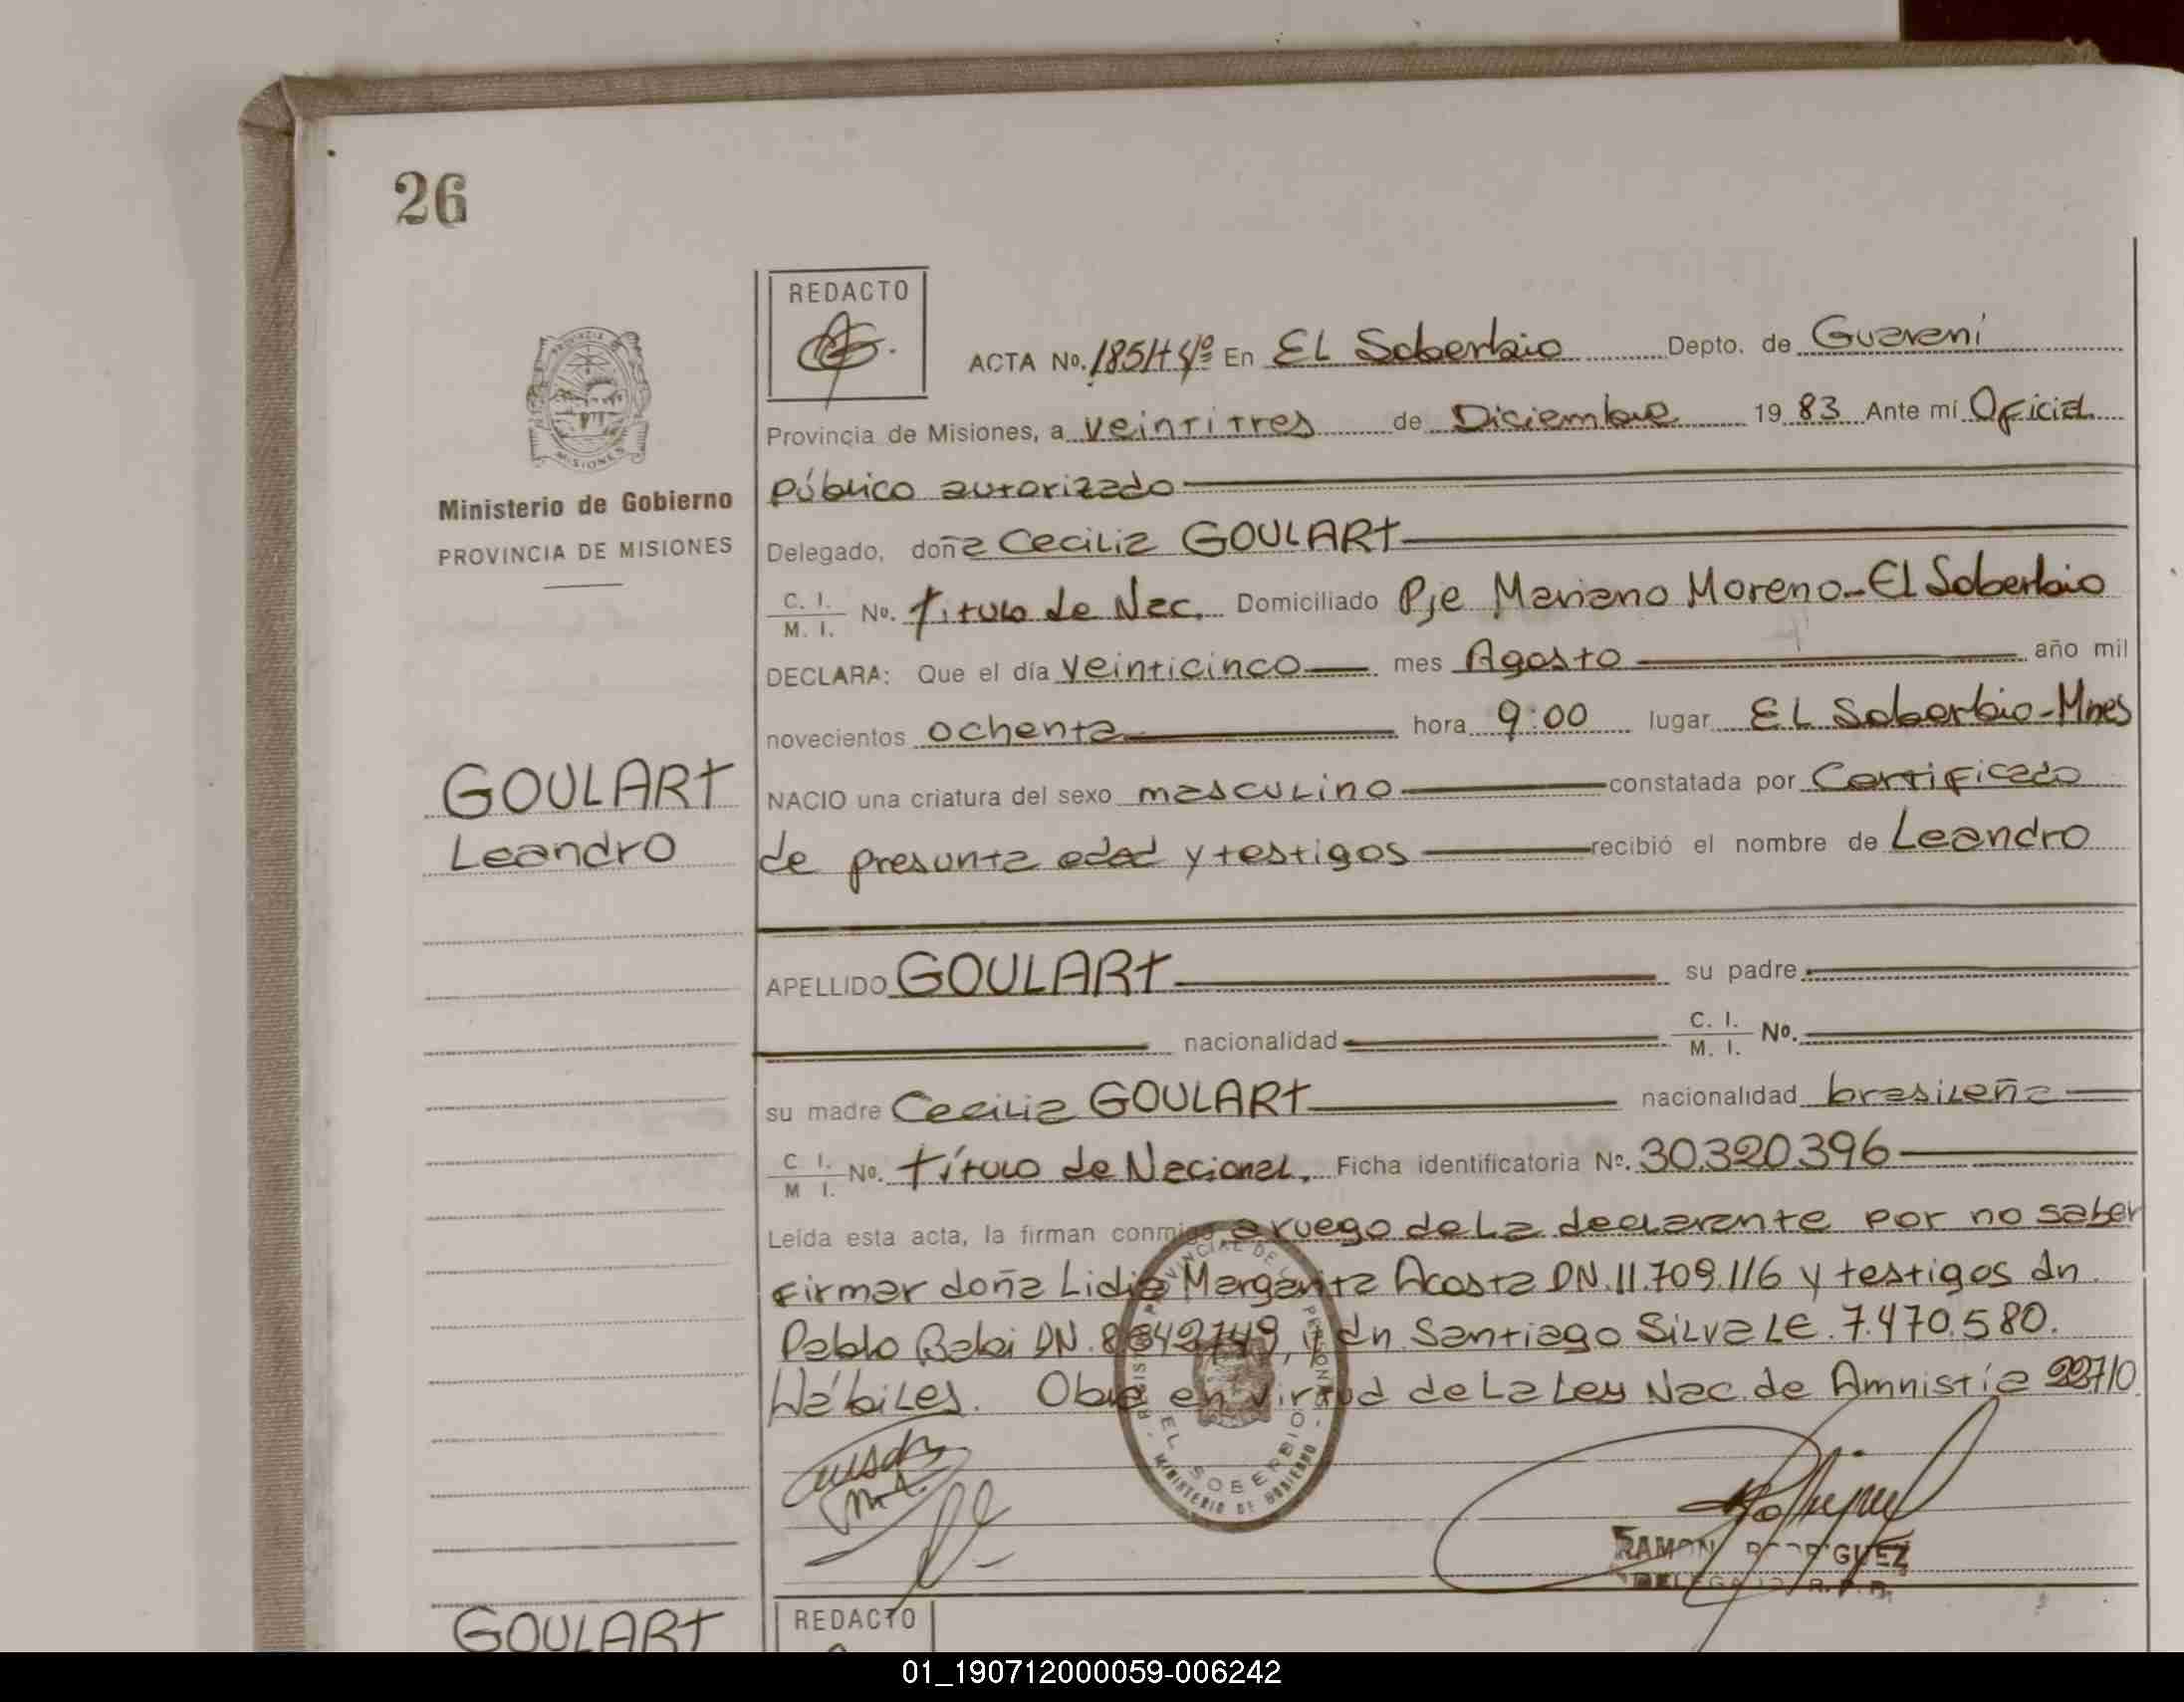 26
REDACTO
ACTA No. 185/T4º En EL Soberbio Depto. de Guaraní
Provincia de Misiones, a veintitres de Diciembre 19 83 Ante mí Oficial
público autorizado
PROVINCIA
MISIONES
Ministerio de Gobierno
PROVINCIA DE MISIONES
Delegado, doña Cecilia GOULART
C. I. / M. I. No. título de Nac. Domiciliado Pje Mariano Moreno-El Soberbio
DECLARA: Que el día veinticinco mes Agosto año mil
novecientos ochenta hora 9:00 lugar EL Soberbio-Mnes
GOULART
Leandro
NACIO una criatura del sexo masculino constatada por Certificado
de presunta edad y testigos recibió el nombre de Leandro
APELLIDO GOULART su padre
nacionalidad C. I. / M. I. No.
su madre Cecilia GOULART nacionalidad brasileña
C I. / M I. No. título de Nacional. Ficha identificatoria No. 30.320.396
Leída esta acta, la firman conmigo a ruego de la declarante por no saber
firmar doña Lidia Margarita Acosta DN.11.709.116 y testigos dn.
Pablo Babi DN. y dn. Santiago Silva LE. 7.470.580.
Hábiles. Obra en virtud de la Ley Nac. de Amnistía 22710
EL SOBERBIO
MINISTERIO DE GOBIERNO
RAMON RODRIGUEZ
DELEGADO R.P.P.
GOULART
REDACTO
01_190712000059-006242